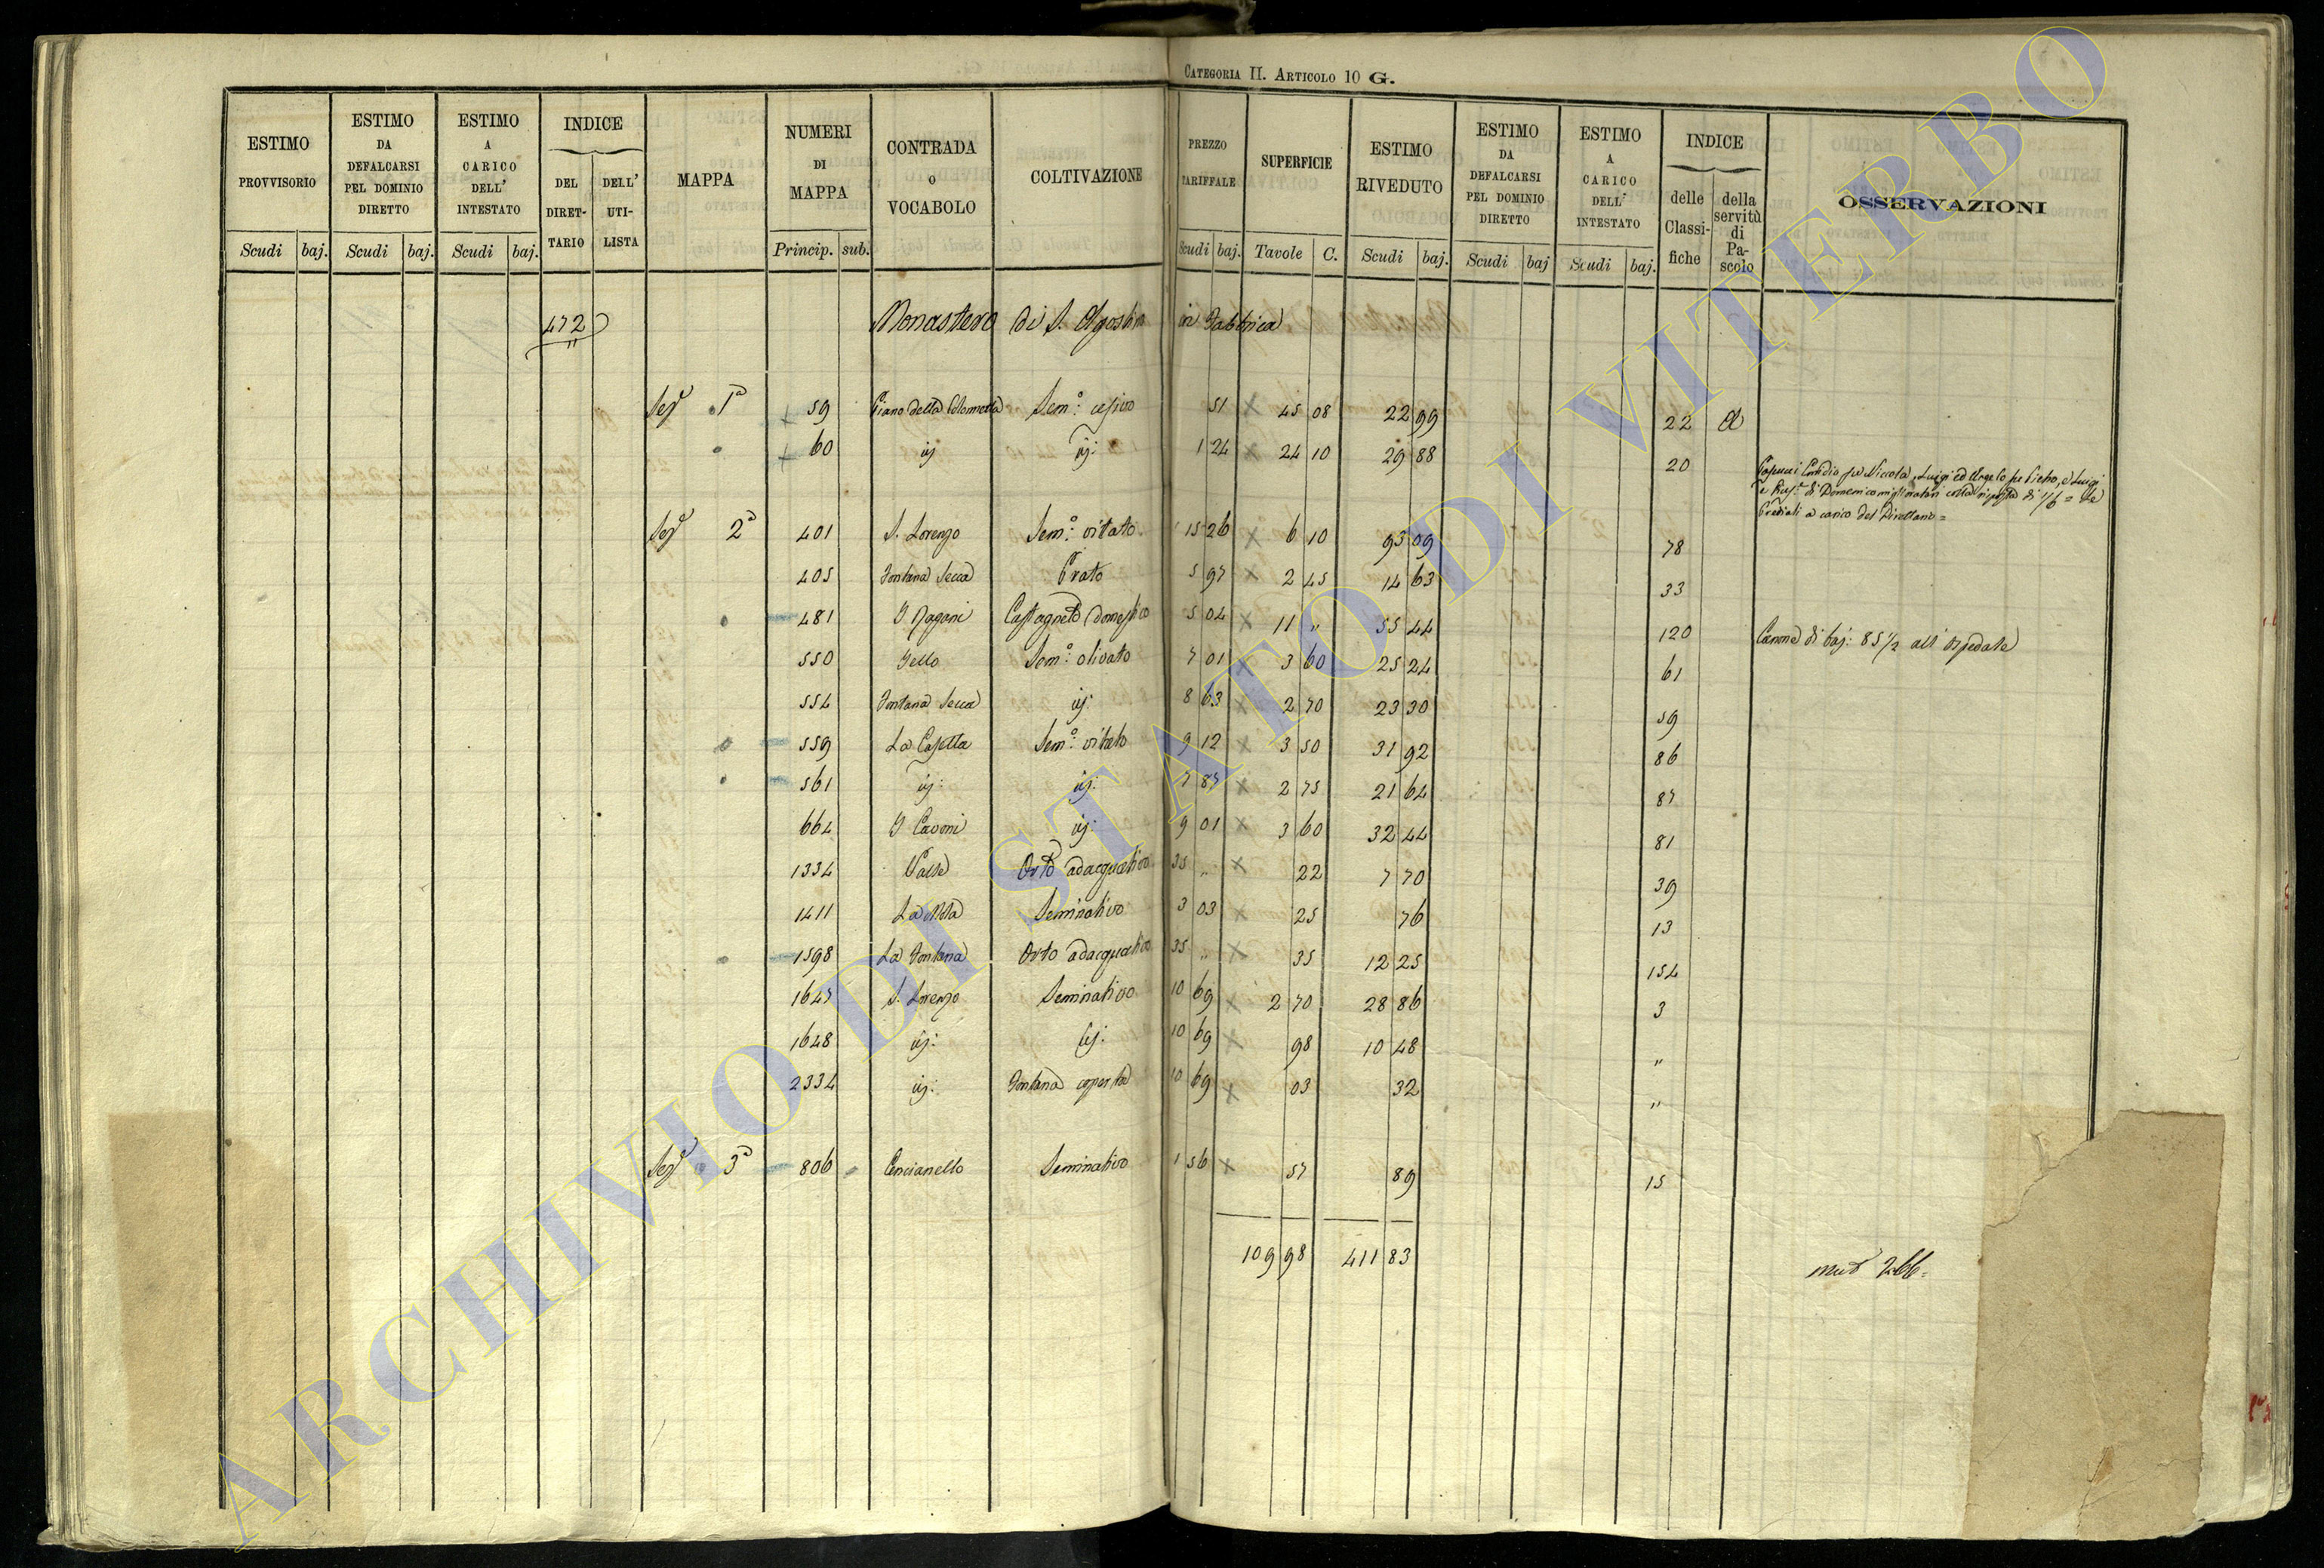 CATEGORIA II. ARTICOLO 10 G.
ESTIMO PROVVISORIO Scudi baj.
ESTIMO DA DEFALCARSI PEL DOMINIO DIRETTO Scudi baj.
ESTIMO A CARICO DELL' INTESTATO Scudi baj.
INDICE DEL DIRETTARIO DELL' UTILISTA
MAPPA
NUMERI DI MAPPA Princip. sub.
CONTRADA O VOCABOLO
COLTIVAZIONE
PREZZO TARIFFALE Scudi baj.
SUPERFICIE Tavole C.
ESTIMO RIVEDUTO Scudi baj.
ESTIMO DA DEFALCARSI PEL DOMINIO DIRETTO Scudi baj
ESTIMO A CARICO DELL' INTESTATO Scudi baj.
INDICE delle Classifiche della servitù di Pascolo
OSSERVAZIONI
472 Monastero di S. Agostino in Fabbrica
Sezᵉ 1ª 59 Piano della Colonnetta Semº: cesivo 51 45 08 22 99 22 A
60 iij iij: 1 24 24 10 29 88 20
Niccola, Luigi ed Angelo per Pietro, e Luigi
di Domenico miglioratari colla risposta di 1/6 =
Prediali a carico del Direttario =
Sezᵉ 2ª 401 S. Lorenzo Semº: vitato 15 26 6 10 93 09 78
405 Fontana Secca Prato 5 97 2 45 14 63 33
481 I Castagneto domestico 5 04 11 " 55 44 120 Canone di baj: 85 1/2 all' Ospedale
550 Tello Semº: olivato 7 01 3 60 25 24 61
554 Fontana Secca iij: 8 63 2 70 23 30 59
559 La Casetta Semº: vitato 9 12 3 50 31 92 86
561 iij: iij: 7 87 2 75 21 64 87
664 I Cavoni iij: 9 01 3 60 32 44 81
1334 Valle Orto adacquativo 35 " 22 7 70 39
1411 La Mola Seminativo 3 03 25 76 13
1598 La Fontana Orto adacquativo 35 " 35 12 25 154
1647 S. Lorenzo Seminativo 10 69 2 70 28 86 3
1648 iij: iij: 10 69 98 10 48 "
2334 iij: Fontana coperta 10 69 03 32 "
Sezᵉ 3ª 806 Cencianello Seminativo 1 56 57 89 15
109 98 411 83
266 =
ARCHIVIO DI STATO DI VITERBO